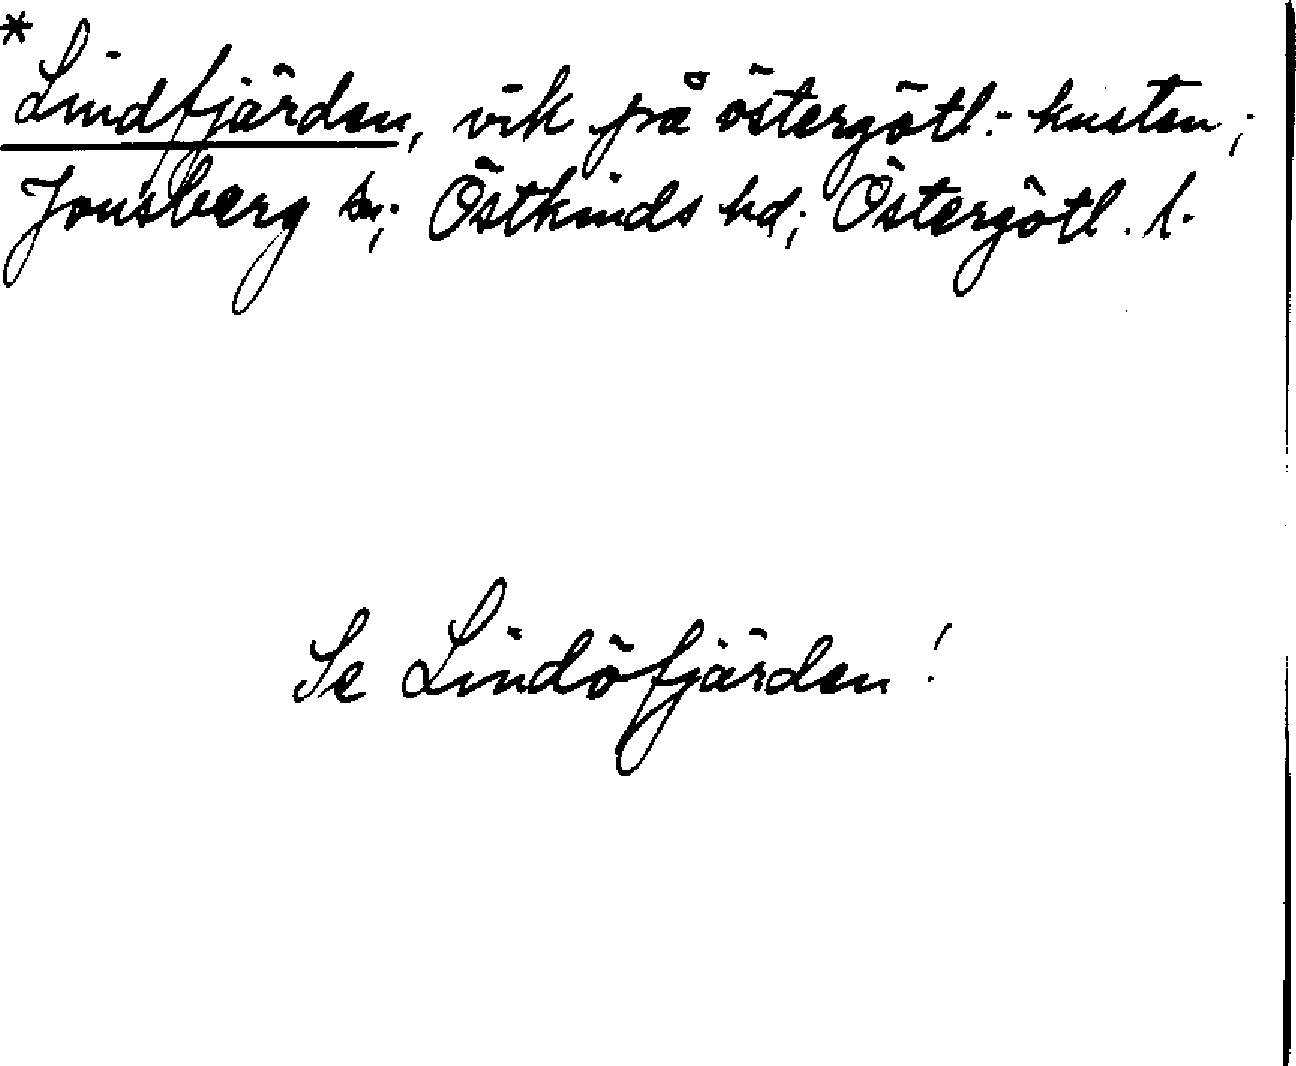 * Lindfjärden, vik på östergötl.-kusten;
Jonsberg sn; Östkinds hd; Östergötl. l.
Se Lindöfjärden!